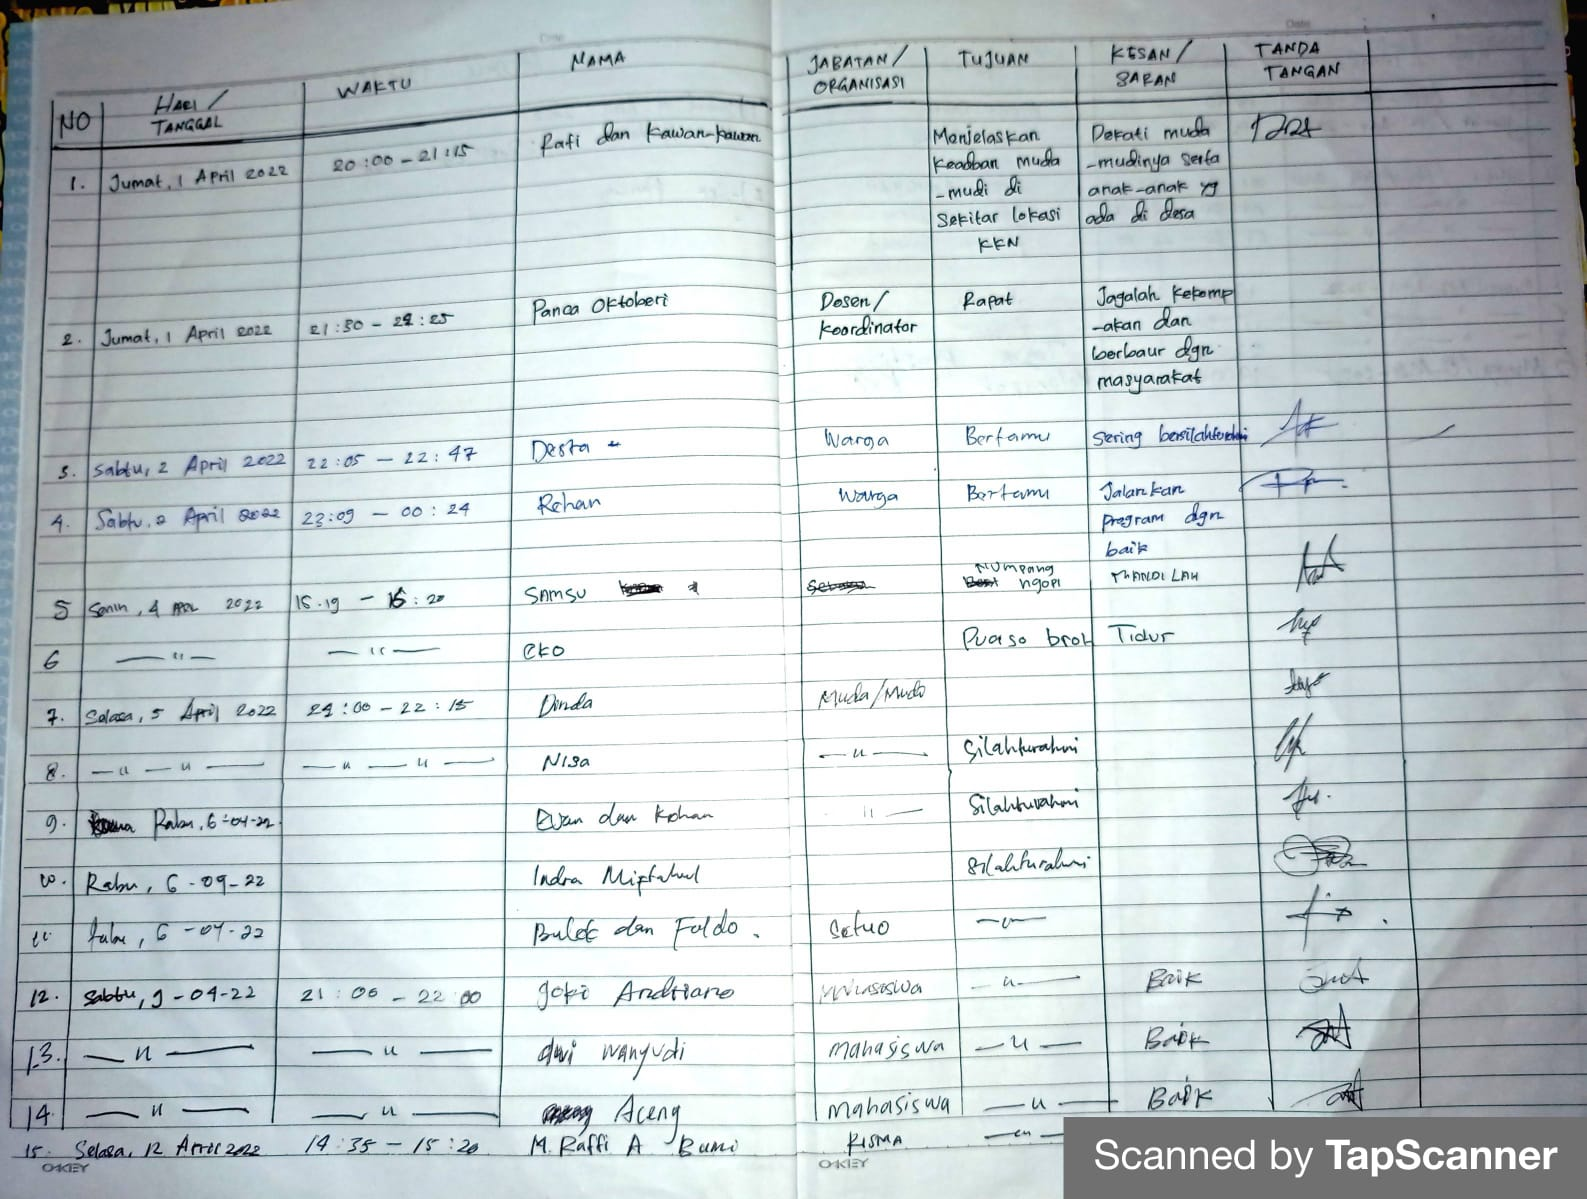 NO
HARI / TANGGAL
WAKTU
NAMA
JABATAN / ORGANISASI
TUJUAN
KESAN / SARAN
TANDA TANGAN
1. Jumat, 1 April 2022 20:00 - 21:15 Rafi dan Kawan-kawan Menjelaskan Dekati muda
Keadaan muda -mudinya serta
-mudi di anak-anak yg
Sekitar lokasi ada di desa
KKN
2. Jumat, 1 April 2022 21:30 - Panca Oktoberi Dosen/ Rapat Jagalah Kekomp
Koordinator -akan dan
berbaur dgn
masyarakat
3. Sabtu, 2 April 2022 22:05 - 22:47 Desta Warga Bertamu Sering
4. Sabtu, 2 April 2022 23:09 - 00:24 Rehan Warga Bertamu Jalankan
program dgn
baik
5 Senin, 4 2022 15.19 - 16:20 SAMSU Numpang ngopi MANDI LAH
6 — " — — " — eko Puaso broh Tidur
7. Selasa, 5 April 2022 - 22:15 Dinda Muda/Mudi
8. — " — " — — " — " — Nisa — " — Silahturahmi
9. Rabu, 6-04-22 Evan dan " — Silahturahmi
10. Rabu, 6-04-22 Indra Miftahul Silahturahmi
11. 6-04-22 dan — " —
12. Sabtu, 9-04-22 21:00 - 22:00 Joki Andriano — " — Baik
13. — " — — " — wahyudi Mahasiswa — " — Baik
14. — " — — " — Aceng Mahasiswa — " — Baik
15. Selasa, 12 April 2022 14:35 - 15:20 M. Raffi A Bumi RISMA — " —
OKEY
OKEY
Scanned by TapScanner